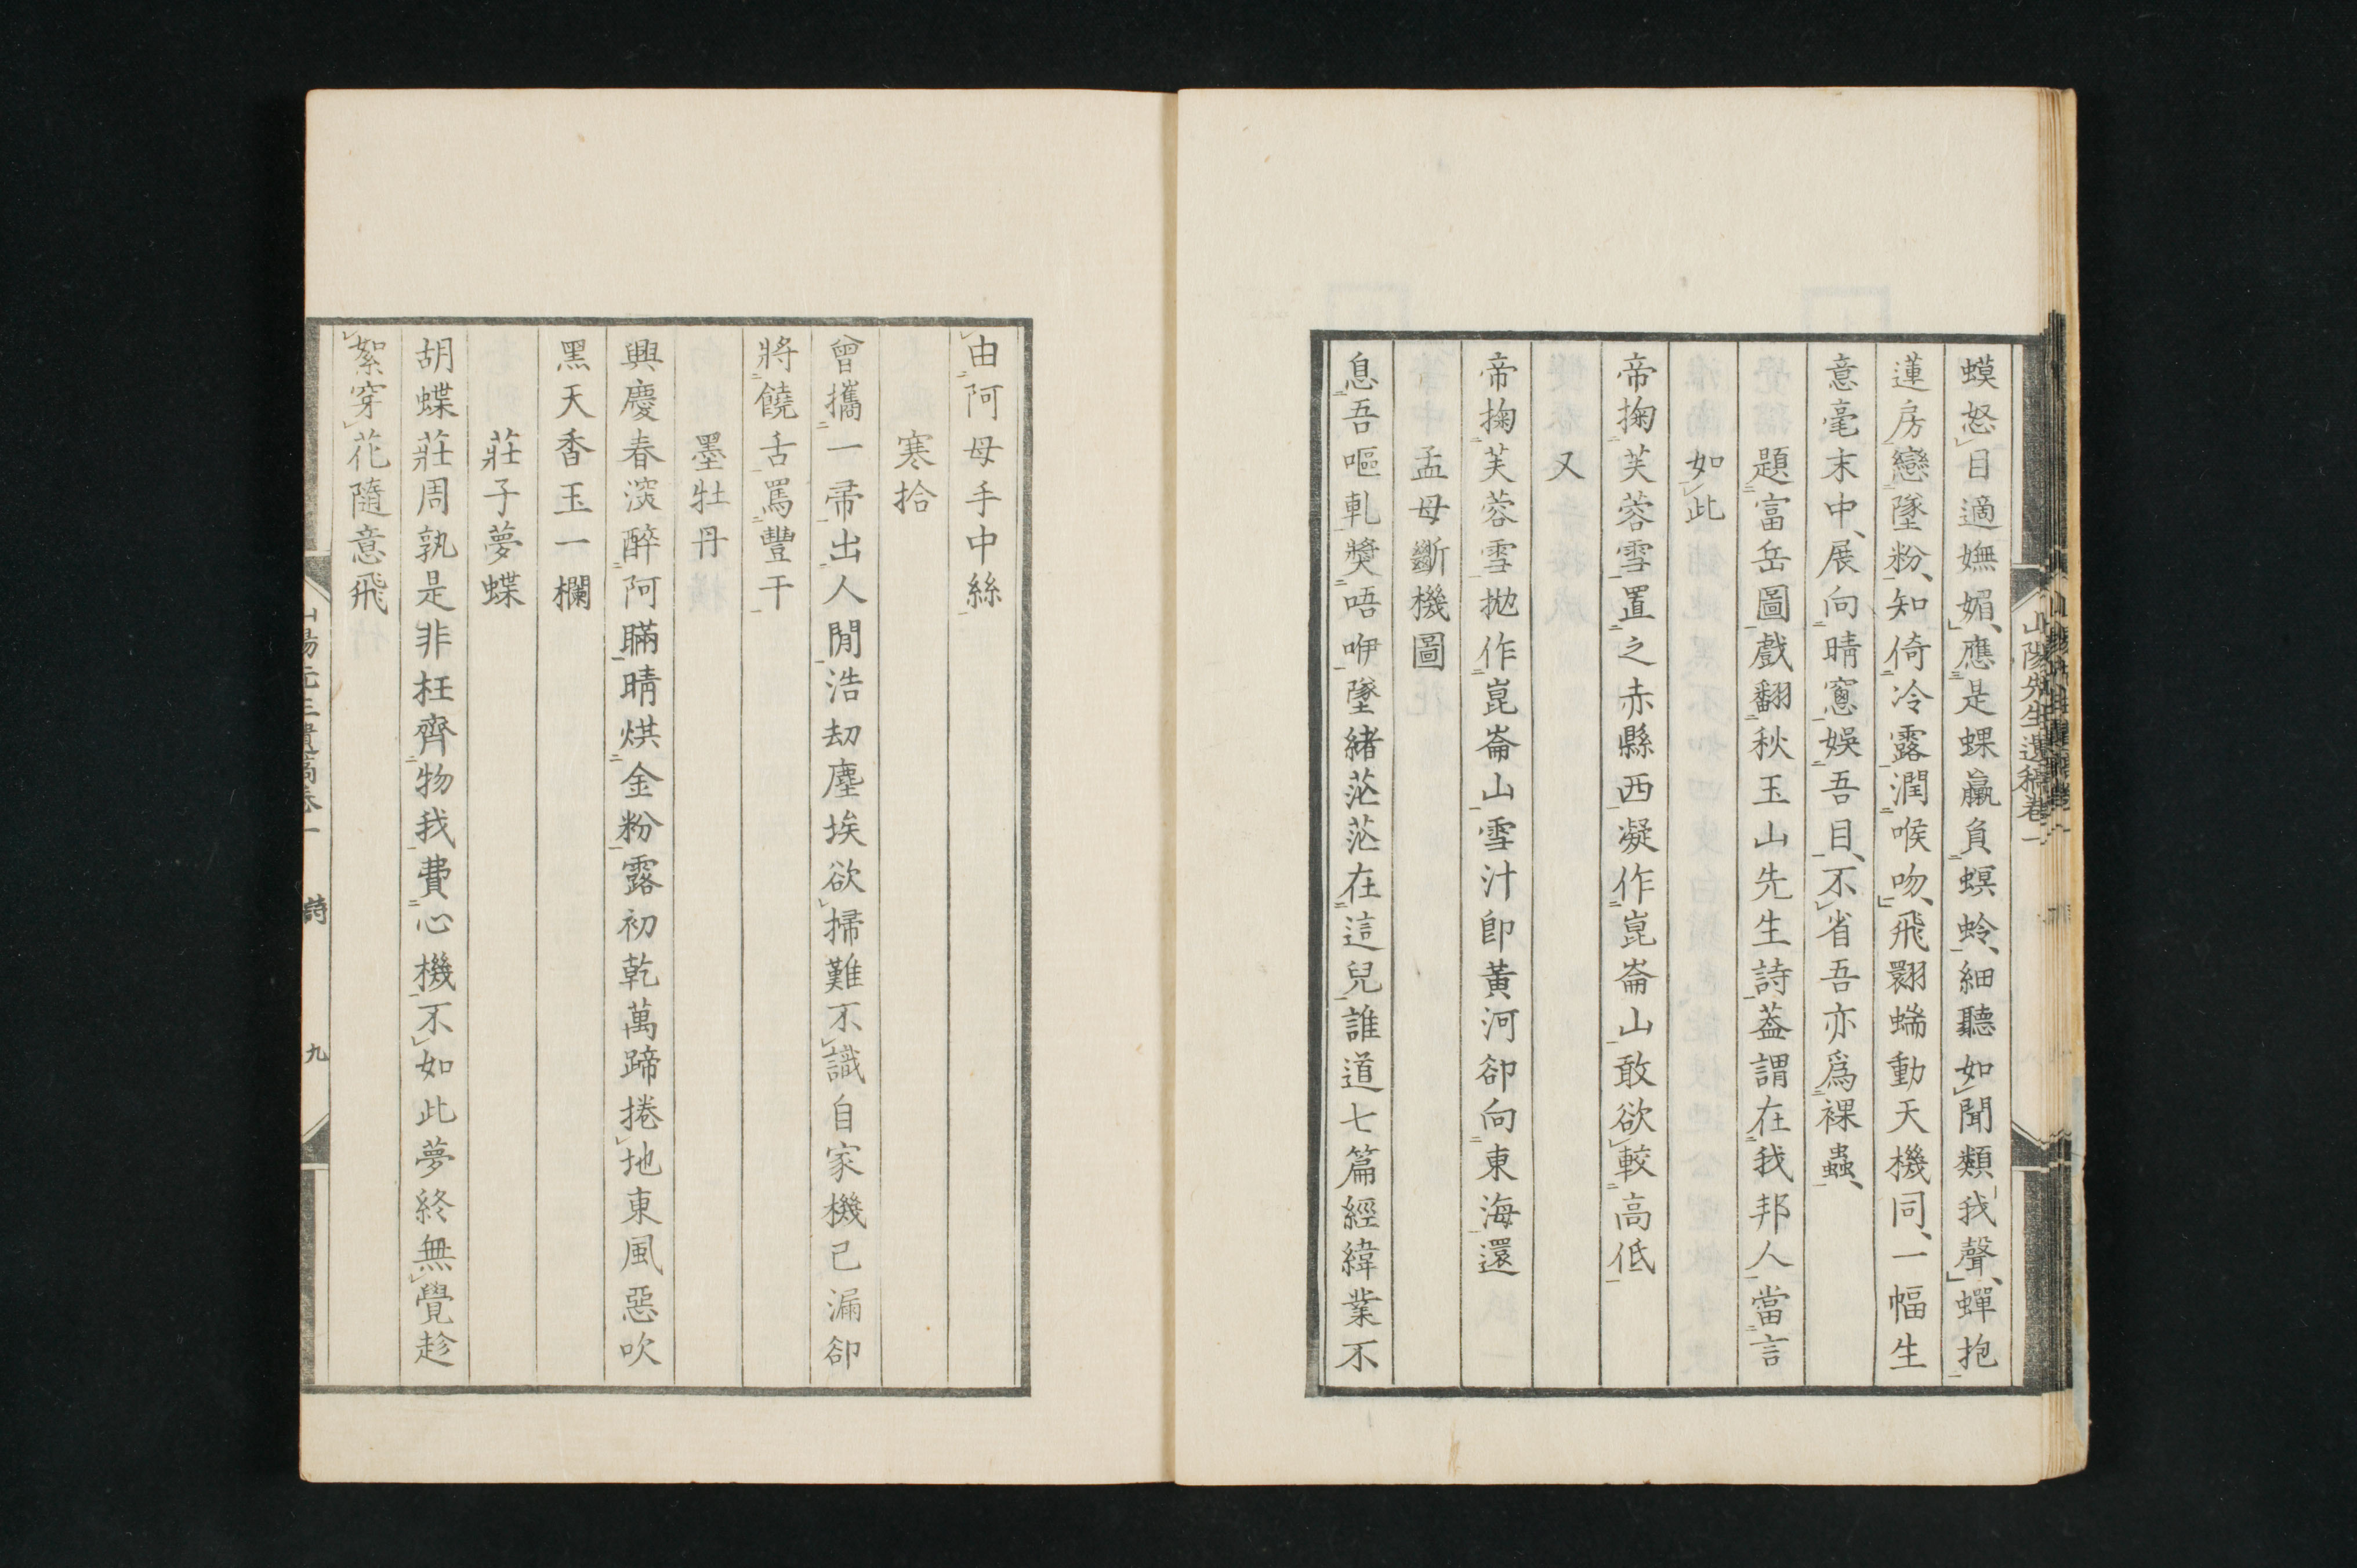 山陽先生遺稿卷一
蟆怒目適嫵媚、應是蜾蠃負螟蛉、細聽如聞類我聲、蟬抱
蓮房戀墜粉、知倚冷露潤喉吻、飛翾蝡動天機同、一幅生
意毫末中、展向晴窻娛吾目、不省吾亦爲裸蟲、
題富岳圖戲翻秋玉山先生詩葢謂在我邦人當言
如此
帝掬芙蓉雪置之赤縣西凝作崑崙山敢欲較高低
又
帝掬芙蓉雪拋作崑崙山雪汁卽黃河卻向東海還
孟母斷機圖
息吾嘔軋奬唔咿墜緒茫茫在這兒誰道七篇經緯業不
由阿母手中絲
寒拾
曾攜一帚出人閒浩劫塵埃欲掃難不識自家機已漏卻
將饒舌罵豐干
墨牡丹
興慶春濃醉阿瞞晴烘金粉露初乾萬蹄捲地東風惡吹
黑天香玉一欄
莊子夢蝶
胡蝶莊周孰是非枉齊物我費心機不如此夢終無覺趁
絮穿花隨意飛
詩
九